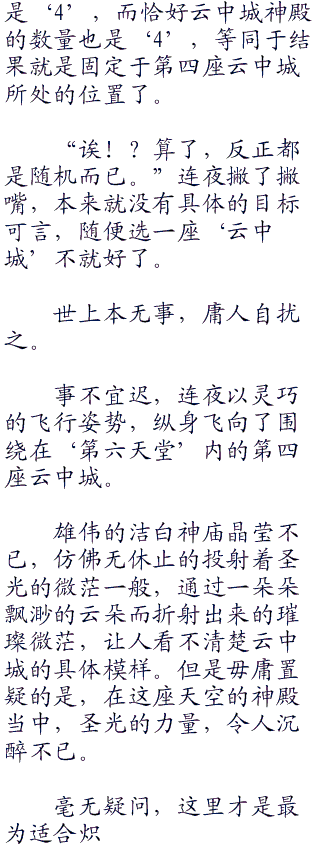 是‘4’，而恰好云中城神殿
的数量也是‘4’，等同于结
果就是固定于第四座云中城
所处的位置了。
“诶！？算了，反正都
是随机而已。”连夜撇了撇
嘴，本来就没有具体的目标
可言，随便选一座‘云中
城’不就好了。
世上本无事，庸人自扰
之。
事不宜迟，连夜以灵巧
的飞行姿势，纵身飞向了围
绕在‘第六天堂’内的第四
座云中城。
雄伟的洁白神庙晶莹不
已，仿佛无休止的投射着圣
光的微茫一般，通过一朵朵
飘渺的云朵而折射出来的璀
璨微茫，让人看不清楚云中
城的具体模样。但是毋庸置
疑的是，在这座天空的神殿
当中，圣光的力量，令人沉
醉不已。
毫无疑问，这里才是最
为适合炽